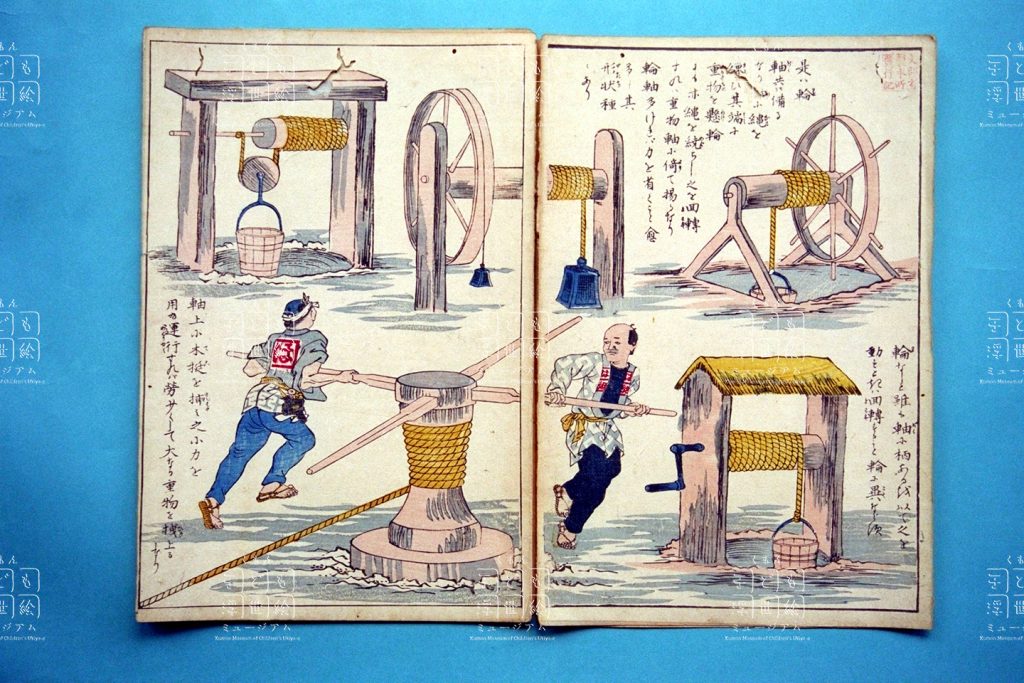 是ハ輪
軸共ニ備る
なり 軸に繩を
纏ひ其端に
重物を懸輪
にも亦繩を繞らし之を回轉
すれハ重物軸に倚て揚るなり
輪軸多けれバ力を省くこと愈
多し 其
形状種
〻あり
輪なしと雖も軸に柄あるを以て之を
動セバ回轉すること輪に異ならず
軸上に木挺を挿之小力を
用ゐ運行すれハ勞少くして大なる重物を挽上る
なり
くもん
子ども
浮世絵
ミュージアム
Kumon Museum of Children's Ukiyo-e